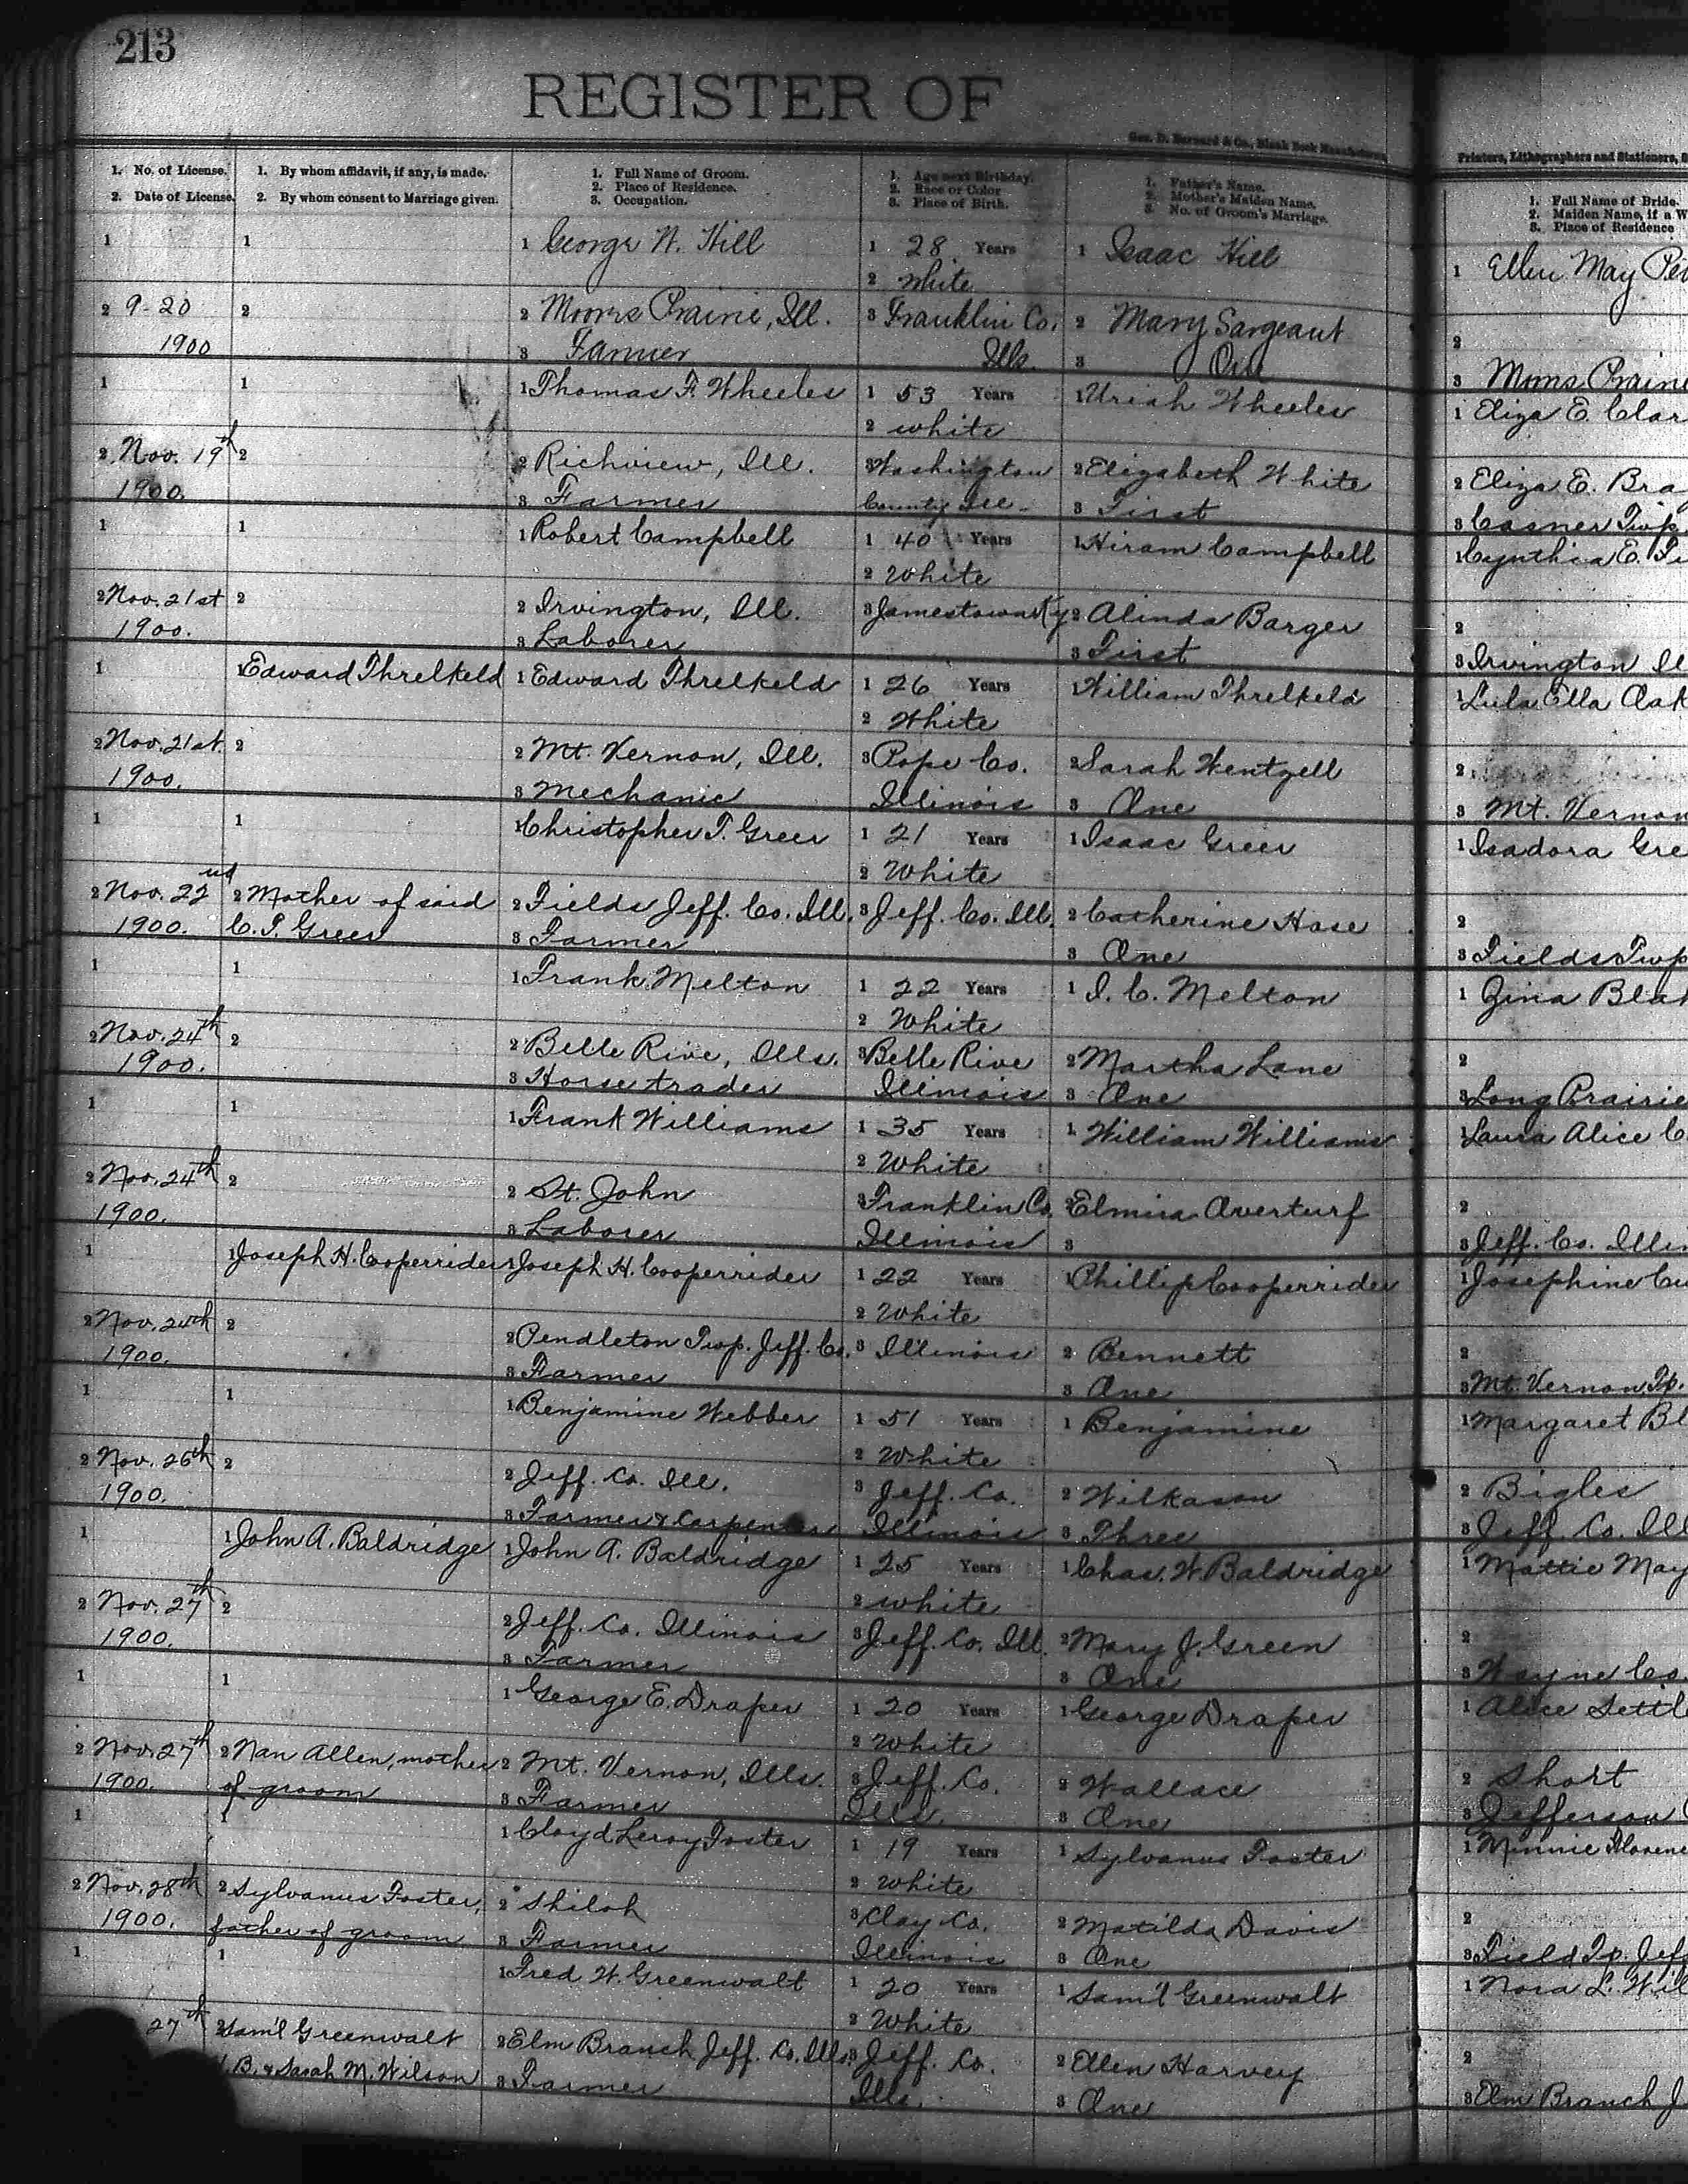 213
REGISTER OF
Geo. D. Barnard & Co., Blank Book Manufacturers,
Printers, Lithographers and Stationers,
1. No. of License.
2. Date of License.
1. By whom affidavit, if any, is made.
2. By whom consent to Marriage given.
1. Full Name of Groom.
2. Place of Residence.
3. Occupation.
1. Age next Birthday.
2. Race or Color
3. Place of Birth.
1. Father's Name.
2. Mother's Maiden Name.
3. No. of Groom's Marriage.
1. Full Name of Bride.
2. Maiden Name, if a W
3. Place of Residence
1 1 1 George W. Hill 1 28 Years 1 Isaac Hill 1 Ellen May
2 White
2 9-20 2 2 Moores Prairie, Ill. 3 Franklin Co. 2 Mary Sargeant 2
1900 3 Farmer Ills. 3 3 Moores Prairie
1 1 1 Thomas F. Wheeles 1 53 Years 1 Uriah Wheeles 1 Eliza E. Clar
2 white
2 Nov. 19th 2 2 Richview, Ill. 3 Washington 2 Elizabeth White 2 Eliza E. Bra
1900. 3 Farmer County Ill. 3 First 3 Casner Twp.
1 1 1 Robert Campbell 1 40 Years 1 Hiram Campbell 1 Cynthia E.
2 White
2 Nov. 21st 2 2 Irvington, Ill. 3 Jamestown Ky 2 Alinda Barger 2
1900. 3 Laborer 3 First 3 Irvington Il
1 1 Edward Threlkeld 1 Edward Threlkeld 1 26 Years 1 William Threlkeld 1 Lula Ella Oak
2 White
2 Nov. 21st 2 2 Mt. Vernon, Ill. 3 Pope Co. 2 Sarah Wentzell 2
1900. 3 Mechanic Illinois 3 One 3 Mt. Vernon
1 1 1 Christopher T. Greer 1 21 Years 1 Isaac Greer 1 Isadora Gre
2 White
2 Nov. 22nd 2 Mother of said 2 Fields Jeff. Co. Ill. 3 Jeff. Co. Ill. 2 Catherine Hase 2
1900. C. T. Greer 3 Farmer 3 One 3 Fields Twp
1 1 1 Frank Melton 1 22 Years 1 I. C. Melton 1 Zina Blak
2 White
2 Nov. 24th 2 2 Belle Rive, Ills. 3 Belle Rive 2 Martha Lane 2
1900. 3 Horse trader Illinois 3 One 3 Long Prairie
1 1 1 Frank Williams 1 35 Years 1 William Williams 1 Laura Alice C
2 White
2 Nov. 24th 2 2 St. John 3 Franklin Co. 2 Elmira Overturf 2
1900. 3 Laborer Illinois 3 3 Jeff. Co. Illin
1 1 Joseph H. Cooperrider 1 Joseph H. Cooperrider 1 22 Years 1 Phillip Cooperrider 1 Josephine Cu
2 White
2 Nov. 24th 2 2 Pendleton Twp. Jeff. Co. 3 Illinois 2 Bennett 2
1900. 3 Farmer 3 One 3 Mt. Vernon Tp.
1 1 1 Benjamine Webber 1 51 Years 1 Benjamine 1 Margaret Bl
2 White
2 Nov. 26th 2 2 Jeff. Co. Ill. 3 Jeff. Co. 2 Wilkason 2 Bigles
1900. 3 Farmer & Carpenter Illinois 3 Three 3 Jeff. Co. Ill
1 1 John A. Baldridge 1 John A. Baldridge 1 25 Years 1 Chas. W. Baldridge 1 Mattie May
2 white
2 Nov. 27th 2 2 Jeff. Co. Illinois 3 Jeff. Co. Ill. 2 Mary J. Green 2
1900. 3 Farmer 3 One 3 Wayne Co.
1 1 1 George E. Draper 1 20 Years 1 George Draper 1 Alice Settl
2 White
2 Nov. 27th 2 Nan Allen, mother 2 Mt. Vernon, Ills. 3 Jeff. Co. 2 Wallace 2 Short
1900. of groom 3 Farmer Ills. 3 One 3 Jefferson
1 1 1 Cloyd Leroy Foster 1 19 Years 1 Sylvanus Foster 1 Minnie Florenc
2 White
2 Nov. 28th 2 Sylvanus Foster, 2 Shiloh 3 Clay Co. 2 Matilda Davis 2
1900. father of groom 3 Farmer Illinois 3 One 3 Field Tp. Jeff
1 1 1 Fred W. Greenwalt 1 20 Years 1 Sam'l Greenwalt 1 Nora L. Wil
2 White
27th 2 Sam'l Greenwalt 2 Elm Branch Jeff. Co. Ills. 3 Jeff. Co. 2 Ellen Harvey 2
B. & Sarah M. Wilson 3 Farmer Ills. 3 One 3 Elm Branch J